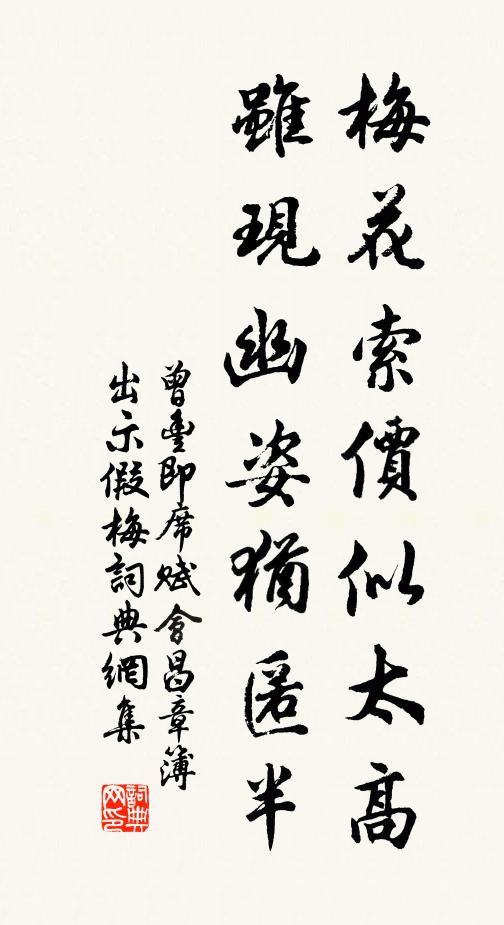 梅花索價似太高
雖現幽姿猶匿半
曾豊即席賦會昌章簿
出示假梅詞典網集
詞典网印